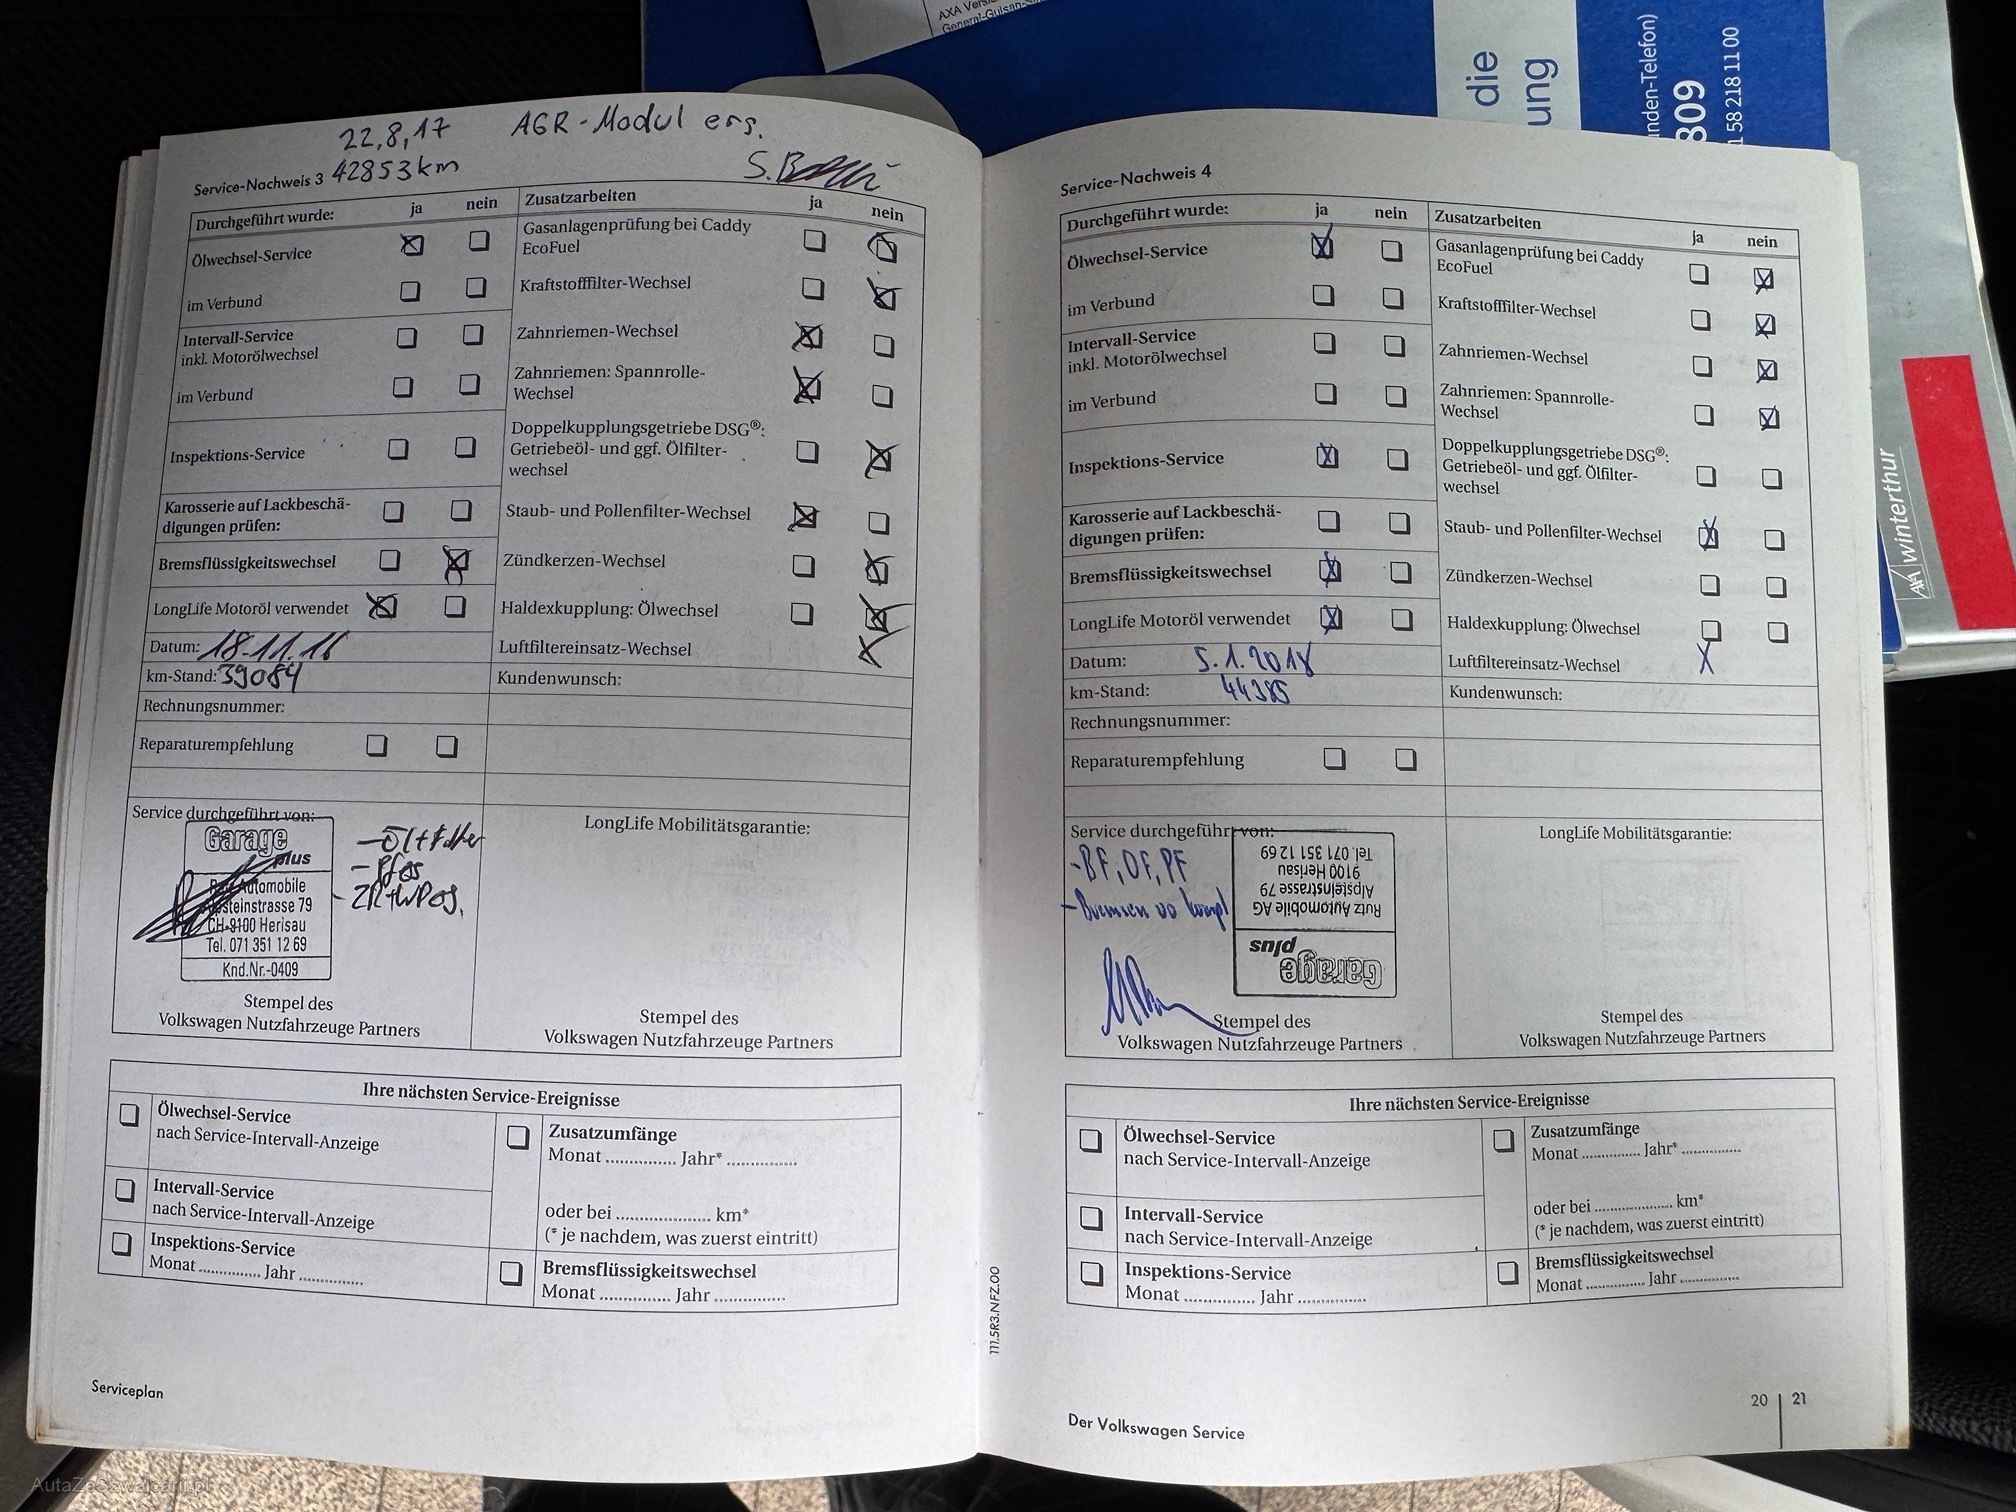 AXA
General-Guisan-
die
ung
unden-Telefon)
809
58 218 11 00
AXA winterthur
22,8,17 AGR-Modul ers.
Service-Nachweis 3 42853km
Durchgeführt wurde: ja nein
Ölwechsel-Service
im Verbund
Intervall-Service
inkl. Motorölwechsel
im Verbund
Inspektions-Service
Karosserie auf Lackbeschä-
digungen prüfen:
Bremsflüssigkeitswechsel
LongLife Motoröl verwendet
Datum: 18.11.16
km-Stand: 39084
Rechnungsnummer:
Reparaturempfehlung
Zusatzarbeiten ja nein
Gasanlagenprüfung bei Caddy
EcoFuel
Kraftstofffilter-Wechsel
Zahnriemen-Wechsel
Zahnriemen: Spannrolle-
Wechsel
Doppelkupplungsgetriebe DSG®:
Getriebeöl- und ggf. Ölfilter-
wechsel
Staub- und Pollenfilter-Wechsel
Zündkerzen-Wechsel
Haldexkupplung: Ölwechsel
Luftfiltereinsatz-Wechsel
Kundenwunsch:
Service durchgeführt von:
Garage
plus
Automobile
steinstrasse 79
CH-9100 Herisau
Tel. 071 351 12 69
Knd.Nr.-0409
- Öl+Filter
Stempel des
Volkswagen Nutzfahrzeuge Partners
LongLife Mobilitätsgarantie:
Stempel des
Volkswagen Nutzfahrzeuge Partners
Ihre nächsten Service-Ereignisse
Ölwechsel-Service
nach Service-Intervall-Anzeige
Intervall-Service
nach Service-Intervall-Anzeige
Inspektions-Service
Monat ............... Jahr ...............
Zusatzumfänge
Monat ............... Jahr* ...............
oder bei .................... km*
(* je nachdem, was zuerst eintritt)
Bremsflüssigkeitswechsel
Monat ............... Jahr ...............
Serviceplan
Service-Nachweis 4
Durchgeführt wurde: ja nein
Ölwechsel-Service
im Verbund
Intervall-Service
inkl. Motorölwechsel
im Verbund
Inspektions-Service
Karosserie auf Lackbeschä-
digungen prüfen:
Bremsflüssigkeitswechsel
LongLife Motoröl verwendet
Datum: 5.1.2018
km-Stand: 44385
Rechnungsnummer:
Reparaturempfehlung
Zusatzarbeiten ja nein
Gasanlagenprüfung bei Caddy
EcoFuel
Kraftstofffilter-Wechsel
Zahnriemen-Wechsel
Zahnriemen: Spannrolle-
Wechsel
Doppelkupplungsgetriebe DSG®:
Getriebeöl- und ggf. Ölfilter-
wechsel
Staub- und Pollenfilter-Wechsel
Zündkerzen-Wechsel
Haldexkupplung: Ölwechsel
Luftfiltereinsatz-Wechsel
Kundenwunsch:
Service durchgeführt von:
- BF, OF, PF
- Bremsen vo kompl
Garage
plus
Rutz Automobile AG
Alpsteinstrasse 79
9100 Herisau
Tel. 071 351 12 69
Stempel des
Volkswagen Nutzfahrzeuge Partners
LongLife Mobilitätsgarantie:
Stempel des
Volkswagen Nutzfahrzeuge Partners
Ihre nächsten Service-Ereignisse
Ölwechsel-Service
nach Service-Intervall-Anzeige
Intervall-Service
nach Service-Intervall-Anzeige
Inspektions-Service
Monat ............... Jahr ...............
Zusatzumfänge
Monat ............... Jahr* ...............
oder bei .................... km*
(* je nachdem, was zuerst eintritt)
Bremsflüssigkeitswechsel
Monat ............... Jahr ...............
111.5R3.NFZ.00
20 | 21
Der Volkswagen Service
AutaZeSzwajcarii.pl